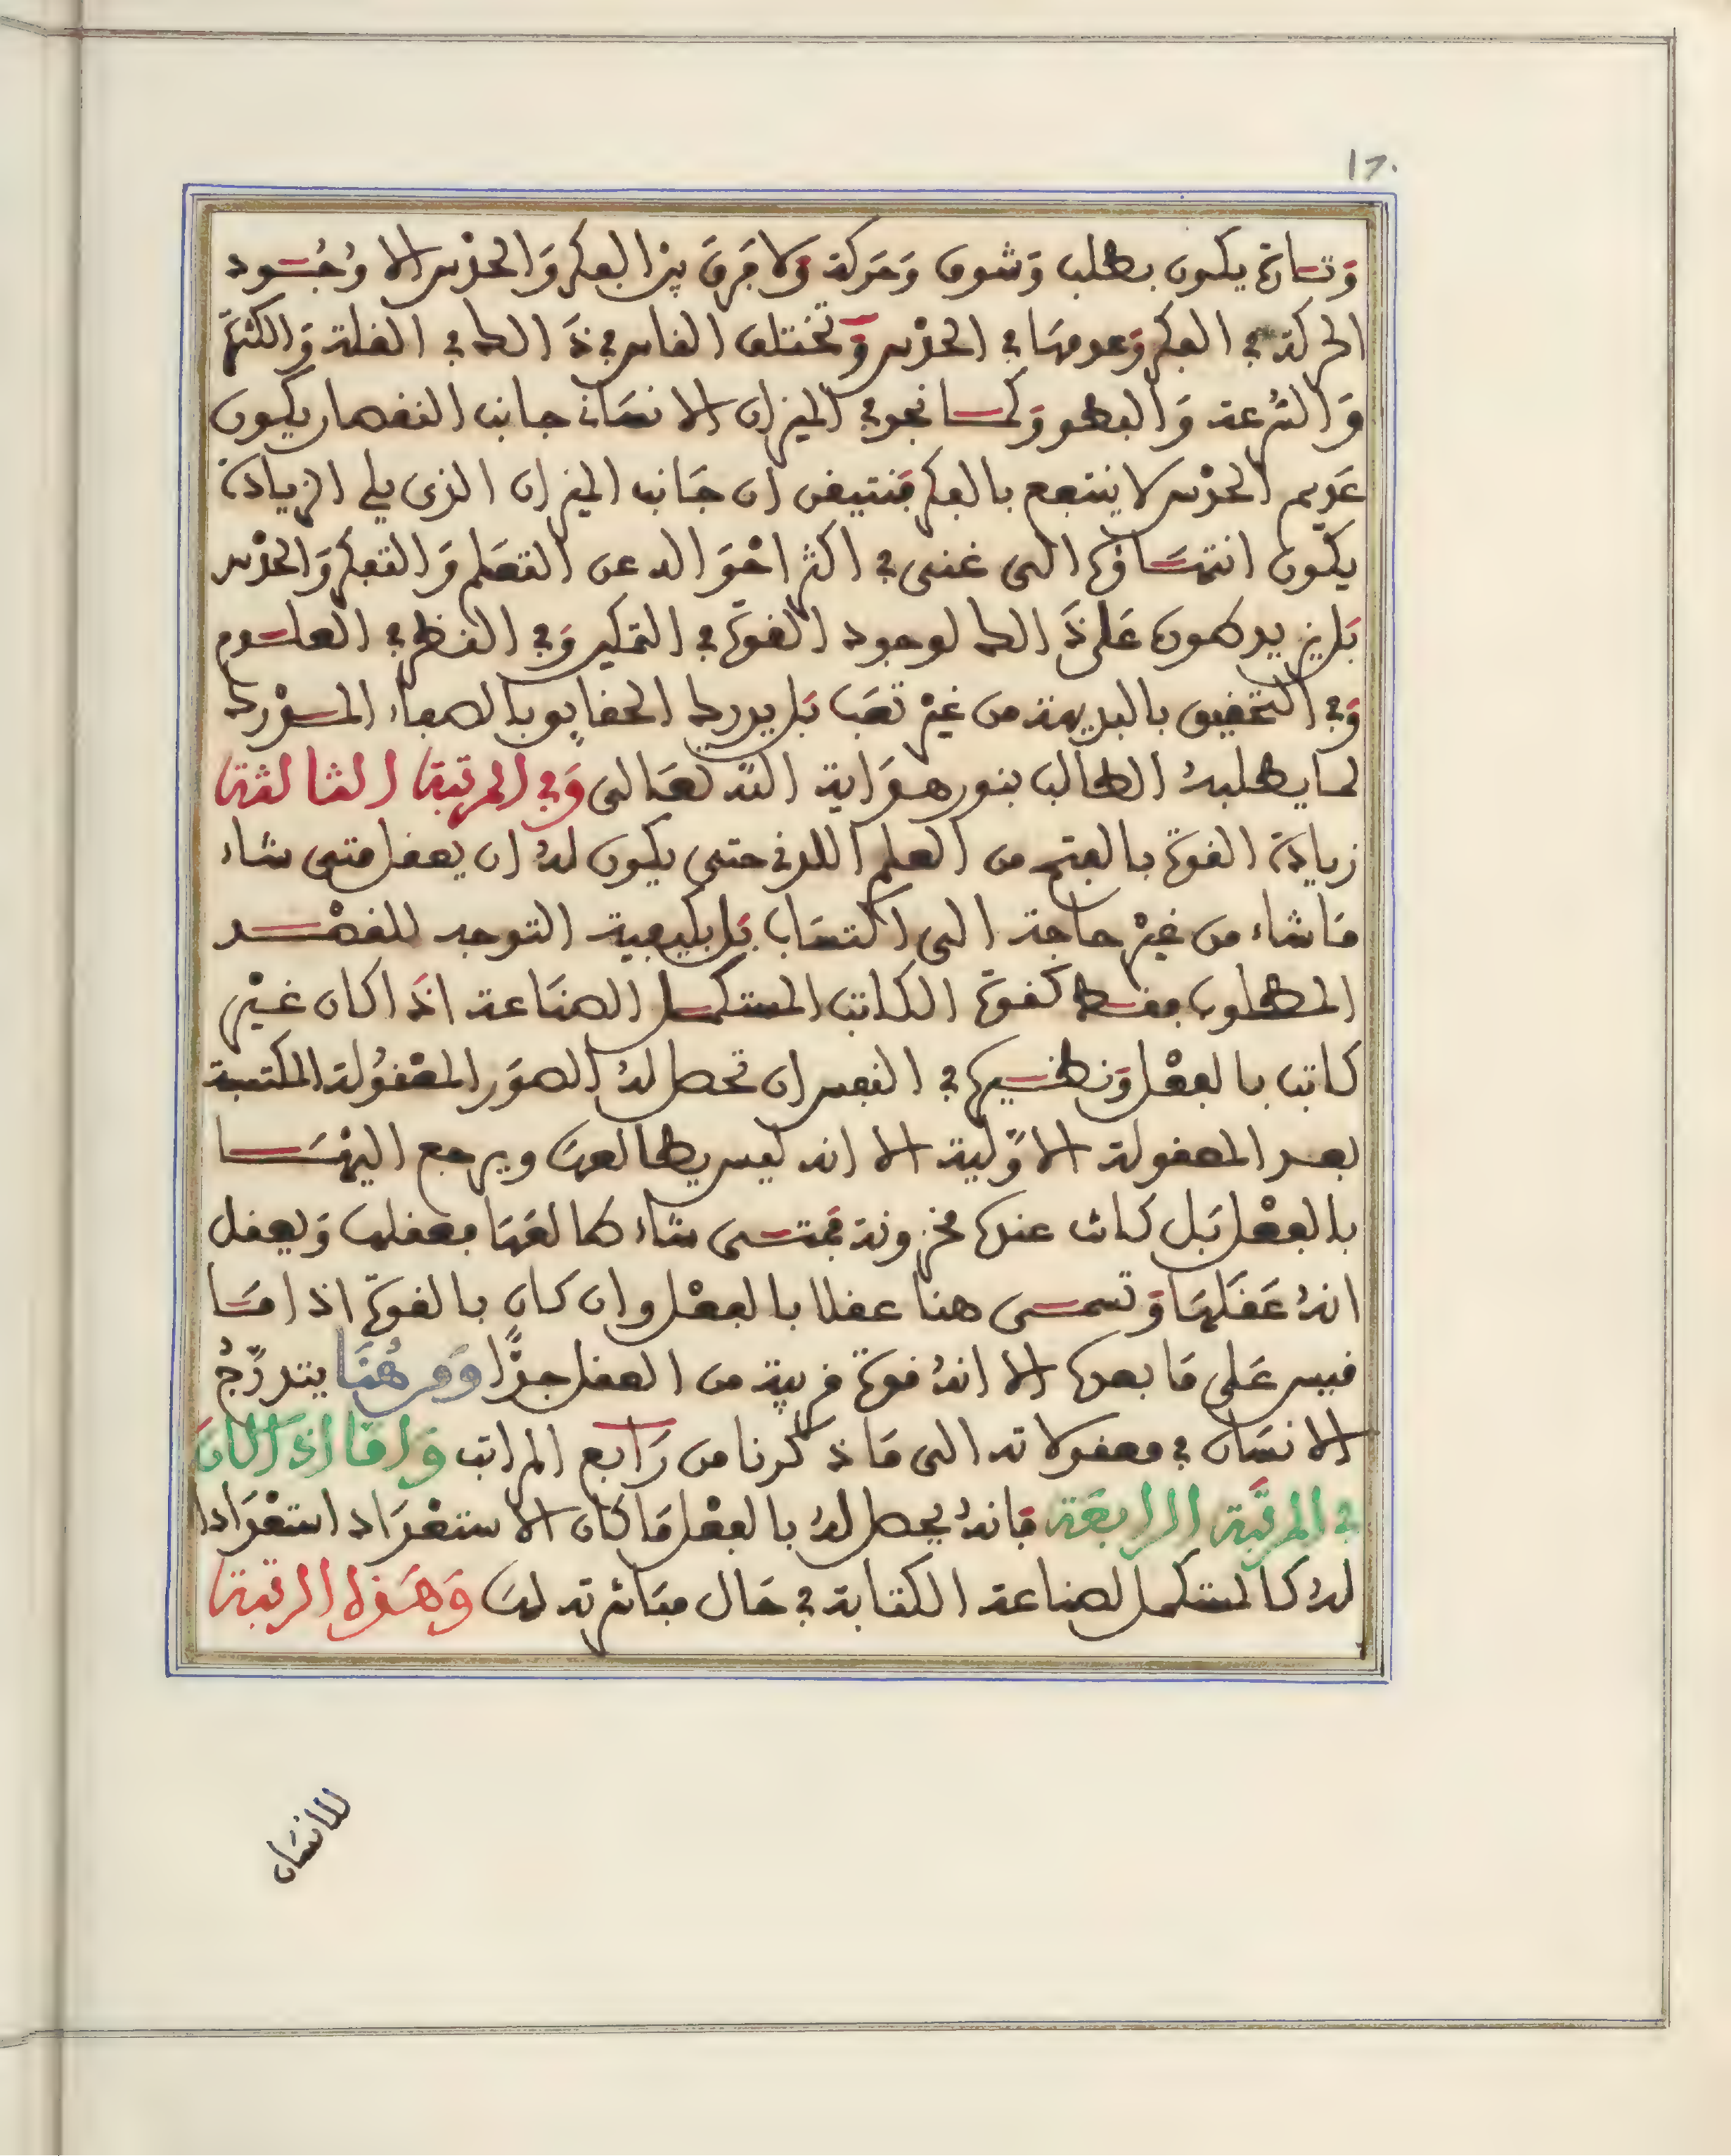 17.
وَتَارة يكون بطلب وَشوق وَحَركة وَلا فَرق بين الفكر وَالحدْس الا وُجُود
الحركة في الفكر وَعدمهَا في الحدْس وَتختلف الناس في ذَالك في القلة وَالكثرَة
وَالسُّرعة وَالبطو وَكما نجد في الميزان الانسَان جانب النقصان يكون
عَديم الحدْس لا ينتفع بالفكر فنتيقن ان جَانب الميزان الذى يلي الزيادَة
يكون انتهَاؤه الى غنى في اكثر احْوَاله عن التعَلم وَالتفكر وَالحدْس
بَل يزيد يكون عَلى ذَالك لوجود القوة في التفكير وَفي النظر في العلوم
وَفي التحقيق بالبديهة من غيْر تعَب بَل يدرك الحقايق بالصفاء المدْرك
لما يطلبهُ الطالب بنور هدَاية الله تعَالى وَفي المرتبة الثالثة
زيادَة القوة بالفتح من العلم اللدني حتى يكون لهُ ان يعقل متى شاء
مَا شاء من غيْر حاجة الى اكتسَاب بَل بكيفية التوجه للقصْد
المطلوب فقط كقوة الكاتب المستكمل الصنَاعة اذَا كان غيْر
كاتب بالفعْل وَنظيره في النفس ان تحصل لهُ الصوَر المعْقولة المكتسبة
بعد المعقولة الاوّلية الا انه ليس يطالعهَا ويرجع اليهَا
بالفعْل بَل كانت عنده مخزونة فمتى شاء طالعَهَا فعقلهَا وَيعقل
انهُ عَقَلهَا وَتسمى هنا عقلا بالفعْل وان كان بالقوة اذا مَا
قيس عَلى مَا بعده الا انهُ قوة قريبة من العقل جدّا وَمن هُنَا يتدرّجُ
الانسَان في معقولاته الى مَا ذكرنا من رَابع المراتب وَامَّا اذَا كَانَ
في المرتَبة الرابعَة فَانهُ يحصل لهُ بالفعْل مَا كان الاستعْدَاد استعْدَادا
لهُ كالمستكمل لصناعة الكتابة في حَال مبَاشرته لهَا وَهَذه الرتبة
للانسَان